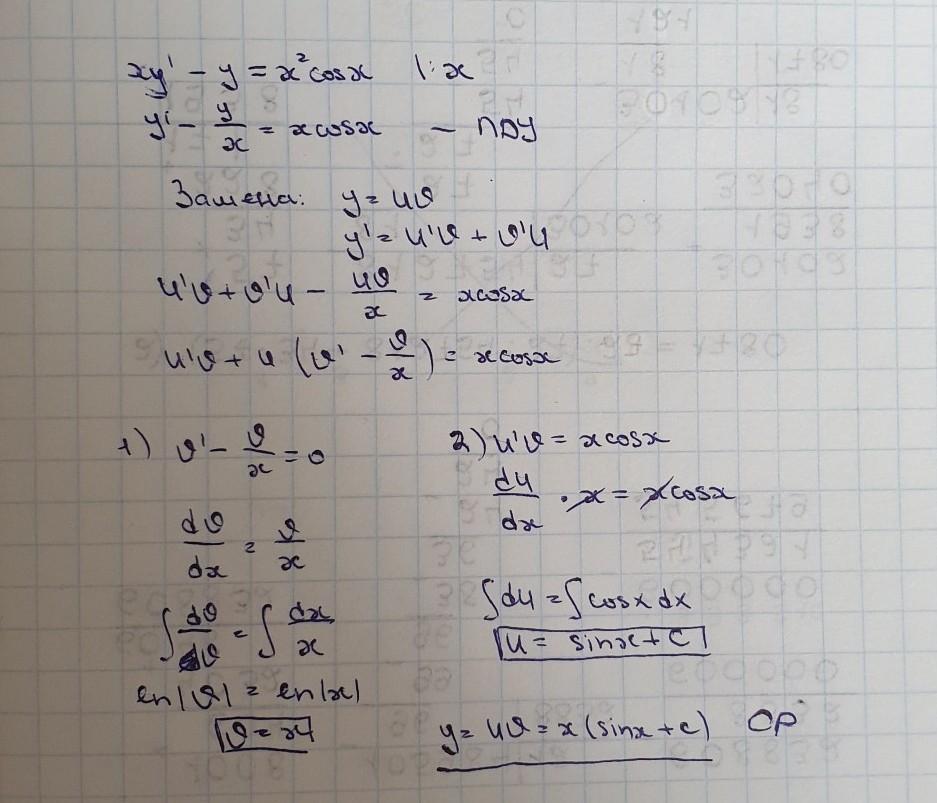 xy' - y = x²cosx |: x
y' - y/x = xcosx - ЛДУ
Замена: y = uv
y' = u'v + v'u
u'v + v'u - uv/x = xcosx
u'v + u (v' - v/x) = xcosx
1) v' - v/x = 0
dv/dx = v/x
∫ dv/v = ∫ dx/x
ln|v| = ln|x|
v = x
2) u'v = xcosx
du/dx · x = xcosx
∫du = ∫cosx dx
u = sinx + c
y = uv = x(sinx + c) ОР